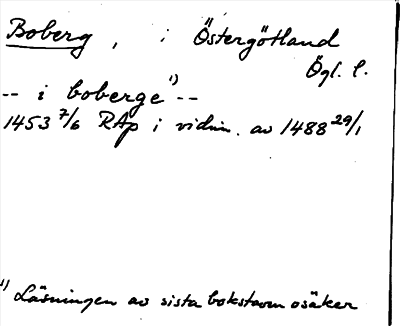 Boberg, i Östergötland
Ögl. l.
-- i boberge¹⁾ --
1453 7/6 RAp i vidim. av 1488 29/1
¹⁾ Läsningen av sista bokstaven osäker